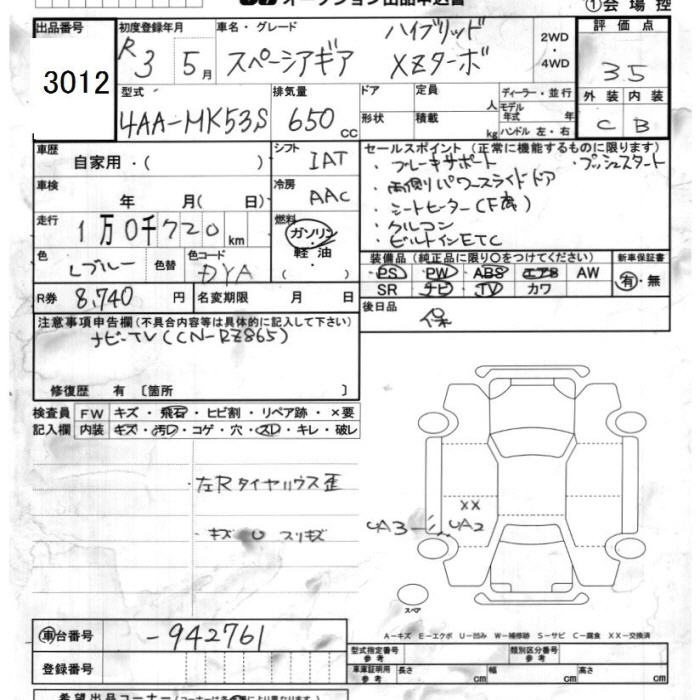 オークション出品申込書
①会場控
出品番号 3012
初度登録年月 R3 5月
車名・グレード スペーシアギア ハイブリッド XZターボ
2WD・4WD
評価点 3.5
外装 C 内装 B
型式 4AA-MK53S
排気量 650 cc
ドア 形状
定員 人
積載 kg
ディーラー・並行
モデル年式 年
ハンドル 左・右
車歴 自家用・( )
シフト IAT
冷房 AAC
車検 年 月( 日)
走行 1万0千720km
燃料 ガソリン・軽油 ( ・ )
色 Lブルー 色替
色コード DYA
R券 8,740円
名変期限 月 日
セールスポイント(正常に機能するものに限ります)
・ブレーキサポート ・プッシュスタート
・両側パワースライドドア
・シートヒーター(F席)
・クルコン
・ビルトインETC
装備品(純正品に限り○をつけてください)
PS PW ABS エアB AW
SR ナビ TV カワ
新車保証書 有・無
後日品 保
注意事項申告欄(不具合内容等は具体的に記入して下さい)
ナビ・TV(CN-RZ865)
修復歴 有 〔箇所 〕
検査員記入欄
FW キズ・飛石・ヒビ割・リペア跡・×要
内装 キズ・汚レ・コゲ・穴・スレ・キレ・破レ
・左Rタイヤハウス歪
・キズ U スリキズ
XX
UA3 UA2
スペア
A-キズ E-エクボ U-凹み W-補修跡 S-サビ C-腐食 XX-交換済
車台番号 -942761
登録番号
型式指定番号 参考
類別区分番号 参考
車庫証明用 参考 長さ cm 幅 cm 高さ cm
希望出品コーナー